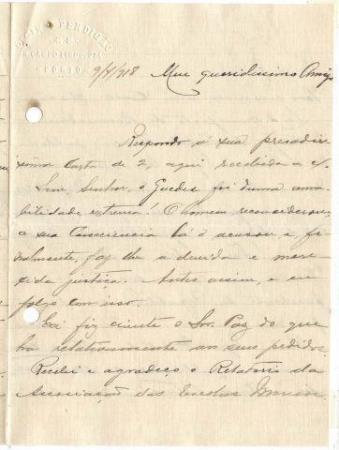 PORTO
9/4/918 Meu queridissimo Amigo
Respondo á sua presadis
sima carta de 2, aqui recebida a
Sim, Senhor, o Guedes foi duma ama
bilidade extrema! O homem reconsiderou,
a sua Consciencia lá o acusou e, fi
nalmente, faz-lhe a devida e mere
cida justiça. Antes assim, e eu
folgo com isso.
fiz ciente o Snr. Paz do que
ha relativamente aos seus pedidos.
Recebi e agradeço o Relatorio da
Associação das Escolas Moveis